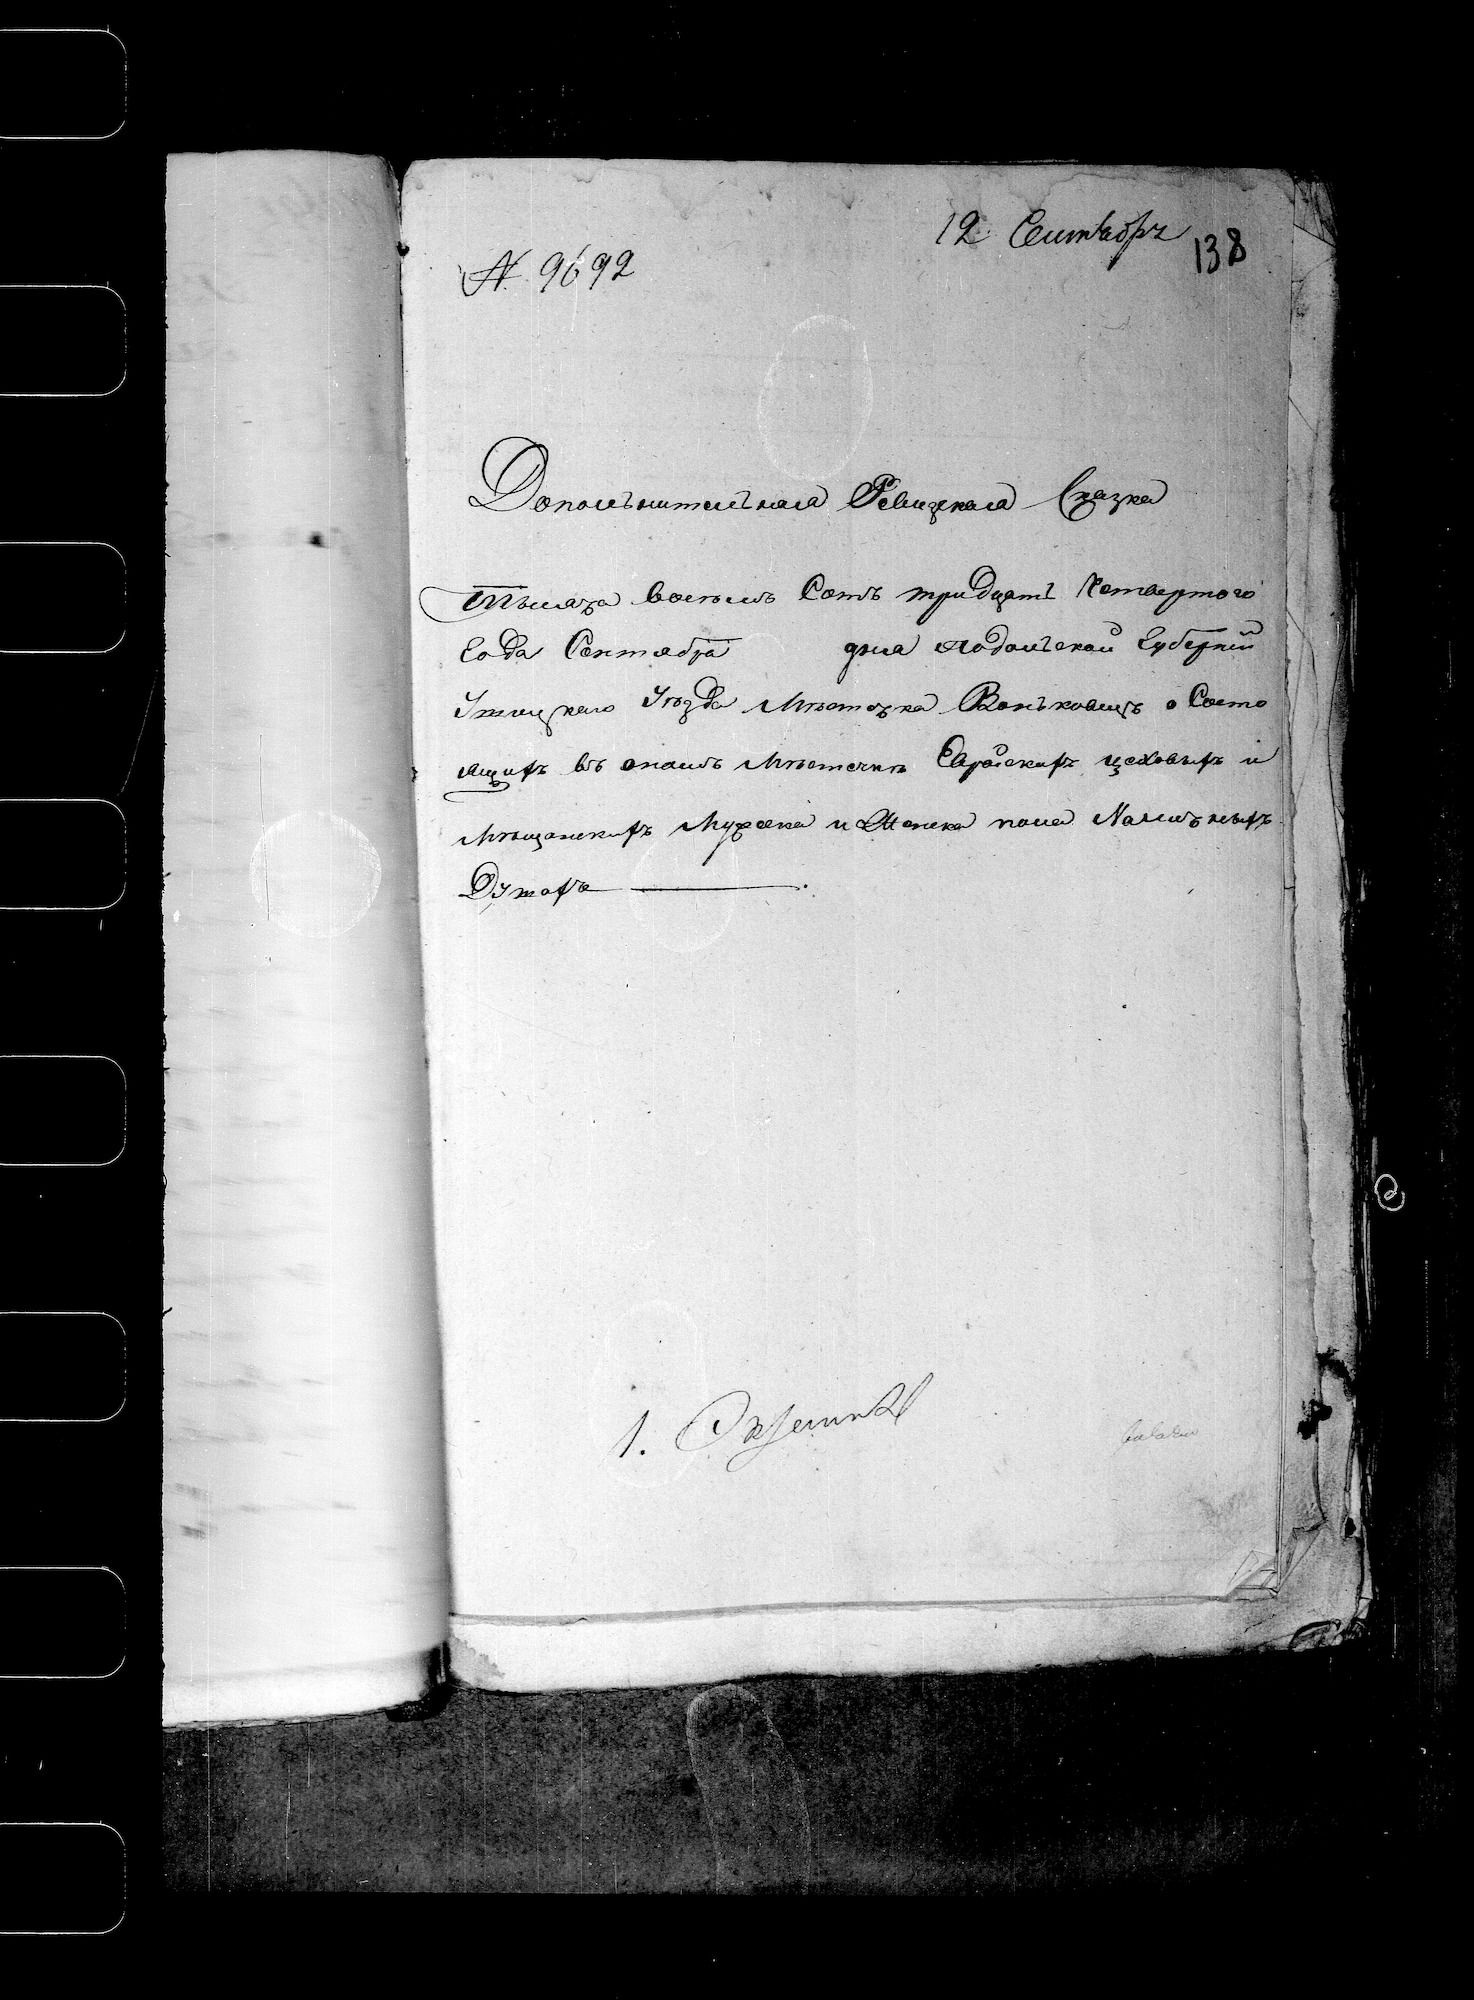 12 Сентября
138
№ 9692
Дополънителъная Ревизская Сказка
Тысяча восемь Сотъ тридцать Четвертого
Года Сентября дня Подолъской Губернїи
Ушицкаго Уезда Мѣстечка Вонъковецъ о Состо
ящихъ въ ономъ Мѣстечкѣ Еврейскихъ цеховыхъ и
Мѣщанскихъ Мужска и Женска пола Налишныхъ
Душахъ
1.